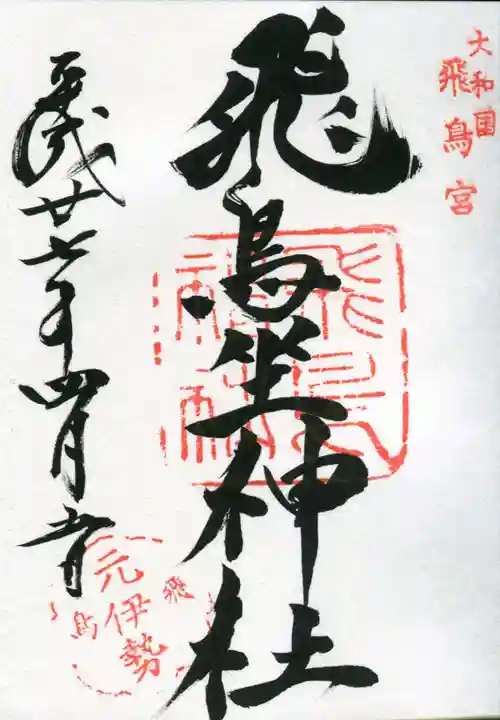 大和国
飛鳥宮
飛鳥坐神社
平成廿七年四月吉日
元伊勢
飛鳥